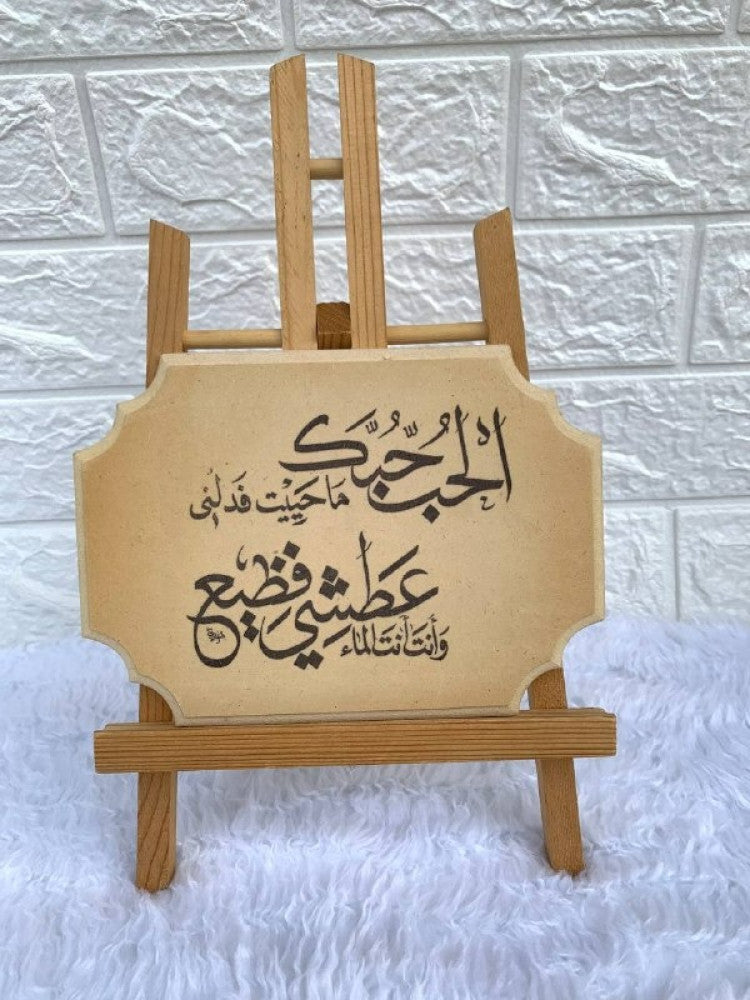 الحُب حُبَّك
مَا حَيِيْت فَدلني
عَطَشِي فِظَيع
وَأنتَ أنتَ الماء